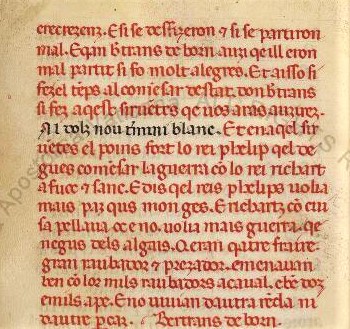 crecrezenz. E si se desfizeron ⁊ si se partiron
mal. E qan Btrans de born auzi qeill eron
mal partit si fo molt alegres. Et aisso si
fezel tēps al comēsar destat. don Btrans
si fez aqest siruētes qe uos aras auzirez.
Al dolz nou tmini blanc. Et en aqel sir
uētes el poins fort lo rei phelip qel de
gues comēsar la guerra cō lo rei richart
a fuec ⁊ sanc. E dis qel reis phelips uolia
mais paz qus monges. E richartz cō cui
sapellaua oc e no. uolia mais guerra. qe
negus dels algais. Q eran qatre fraire
gran raubador ⁊ prezador. e menauan
ben cō lor mils raubadors a caual. e be doz
e mils a pe. E no uiuian dautra rēda ni
dautre pcaz. Bertrans de born.